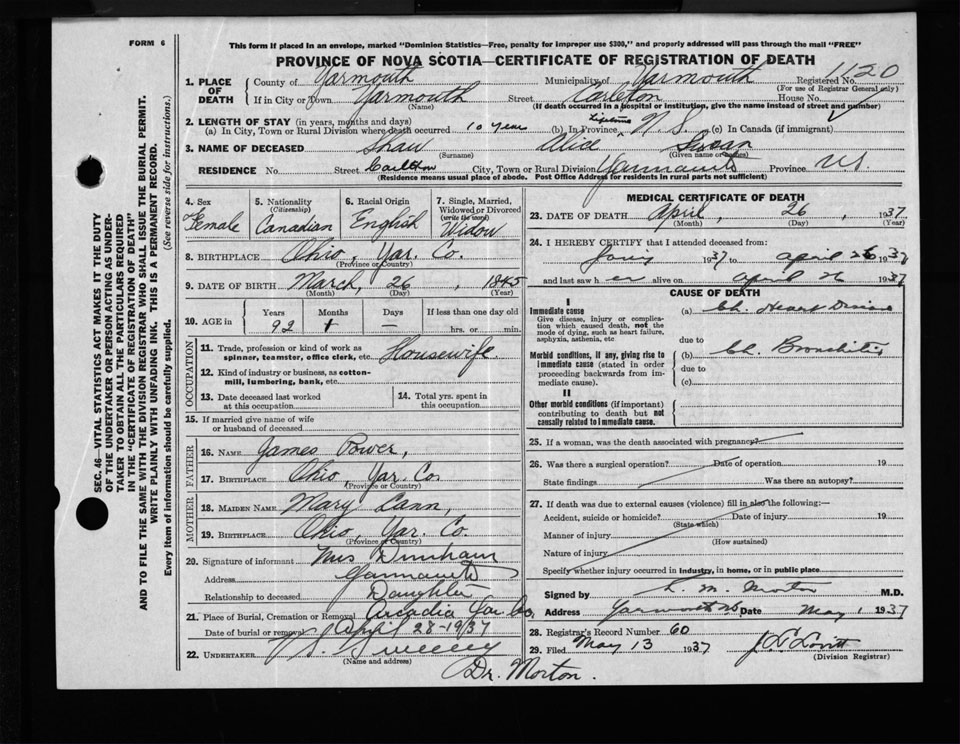 FORM 6
This form if placed in an envelope, marked "Dominion Statistics—Free, penalty for improper use $300," and properly addressed will pass through the mail "FREE"
PROVINCE OF NOVA SCOTIA—CERTIFICATE OF REGISTRATION OF DEATH
1. PLACE OF DEATH
County of Yarmouth Municipality of Yarmouth Registered No. 1120
(For use of Registrar General only)
If in City or Town Yarmouth Street Carleton House No.
(Name) (If death occurred in a hospital or institution, give the name instead of street and number)
2. LENGTH OF STAY (in years, months and days)
(a) In City, Town or Rural Division where death occurred 10 years (b) In Province Lifetime N.S. (c) In Canada (if immigrant)
3. NAME OF DECEASED Shaw Alice
(Surname) (Given name or names)
RESIDENCE No. Street Carlton City, Town or Rural Division Yarmouth Province N.S.
(Residence means usual place of abode. Post Office Address for residents in rural parts not sufficient)
4. Sex Female
5. Nationality (Citizenship) Canadian
6. Racial Origin English
7. Single, Married, Widowed or Divorced (write the word) Widow
8. BIRTHPLACE Ohio, Yar. Co.
(Province or Country)
9. DATE OF BIRTH March, 26, 1845
(Month) (Day) (Year)
10. AGE in Years Months Days If less than one day old
92 1 — hrs. or min.
OCCUPATION
11. Trade, profession or kind of work as spinner, teamster, office clerk, etc. Housewife
12. Kind of industry or business, as cotton-mill, lumbering, bank, etc.
13. Date deceased last worked at this occupation
14. Total yrs. spent in this occupation
15. If married give name of wife or husband of deceased
FATHER
16. NAME James Power,
17. BIRTHPLACE Ohio, Yar. Co.
(Province or Country)
MOTHER
18. MAIDEN NAME Mary Cann,
19. BIRTHPLACE Ohio, Yar. Co.
(Province or Country)
20. Signature of informant Mrs Dunham
Address Yarmouth
Relationship to deceased Daughter
21. Place of Burial, Cremation or Removal Arcadia Yar Co,
Date of burial or removal April 28-1937
22. UNDERTAKER V.S. Sweeney
(Name and address)
Dr. Morton.
MEDICAL CERTIFICATE OF DEATH
23. DATE OF DEATH April, 26, 1937
(Month) (Day) (Year)
24. I HEREBY CERTIFY that I attended deceased from:
1937 to April 26 1937
and last saw h er alive on April 26 1937
CAUSE OF DEATH
I
Immediate cause
Give disease, injury or complication which caused death, not the mode of dying, such as heart failure, asphyxia, asthenia, etc
(a) Ch. Heart Disease
due to
Morbid conditions, if any, giving rise to immediate cause (stated in order proceeding backwards from immediate cause).
(b) Ch. Bronchitis
due to
(c)
II
Other morbid conditions (if important) contributing to death but not causally related to immediate cause.
25. If a woman, was the death associated with pregnancy?
26. Was there a surgical operation? Date of operation 19
State findings Was there an autopsy?
27. If death was due to external causes (violence) fill in also the following:—
Accident, suicide or homicide? Date of injury 19
(State which)
Manner of injury
(How sustained)
Nature of injury
Specify whether injury occurred in industry, in home, or in public place
Signed by L. M. Morton M.D.
Address Yarmouth N.S. Date May 1 1937
28. Registrar's Record Number 60
29. Filed May 13 1937
(Division Registrar)
SEC. 46—VITAL STATISTICS ACT MAKES IT THE DUTY OF THE UNDERTAKER OR PERSON ACTING AS UNDERTAKER TO OBTAIN ALL THE PARTICULARS REQUIRED IN THE "CERTIFICATE OF REGISTRATION OF DEATH" AND TO FILE THE SAME WITH THE DIVISION REGISTRAR WHO SHALL ISSUE THE BURIAL PERMIT.
WRITE PLAINLY WITH UNFADING INK. THIS IS A PERMANENT RECORD.
Every item of information should be carefully supplied. (See reverse side for instructions.)